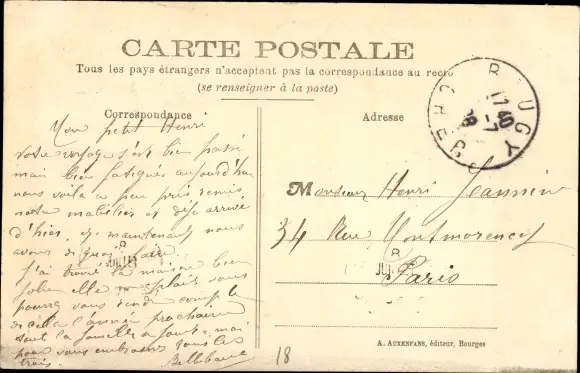 CARTE POSTALE
Tous les pays étrangers n'acceptent pas la correspondance au recto
(se renseigner à la poste)
Correspondance
Mon petit Henri
votre voyage s'est bien passé
mai bien fatigués aujourd'hui
nous voila a peu pris remis
notre mobilier et déja arrivé
d'hier, et maintenant nous
avons de quoi faire
J'ai trouvé la maison bien
jolie elle plais vous
pourrez vous rendre compte
de cela l'année prochaine
tout la famille
pour vous embrasser tous les
trois.
Adresse
Monsieur Henri Jeannin
34 Rue Montmorency
Paris
ROUGY
CHER
17 40
-7
18
A. AUXENFANS, éditeur, Bourges